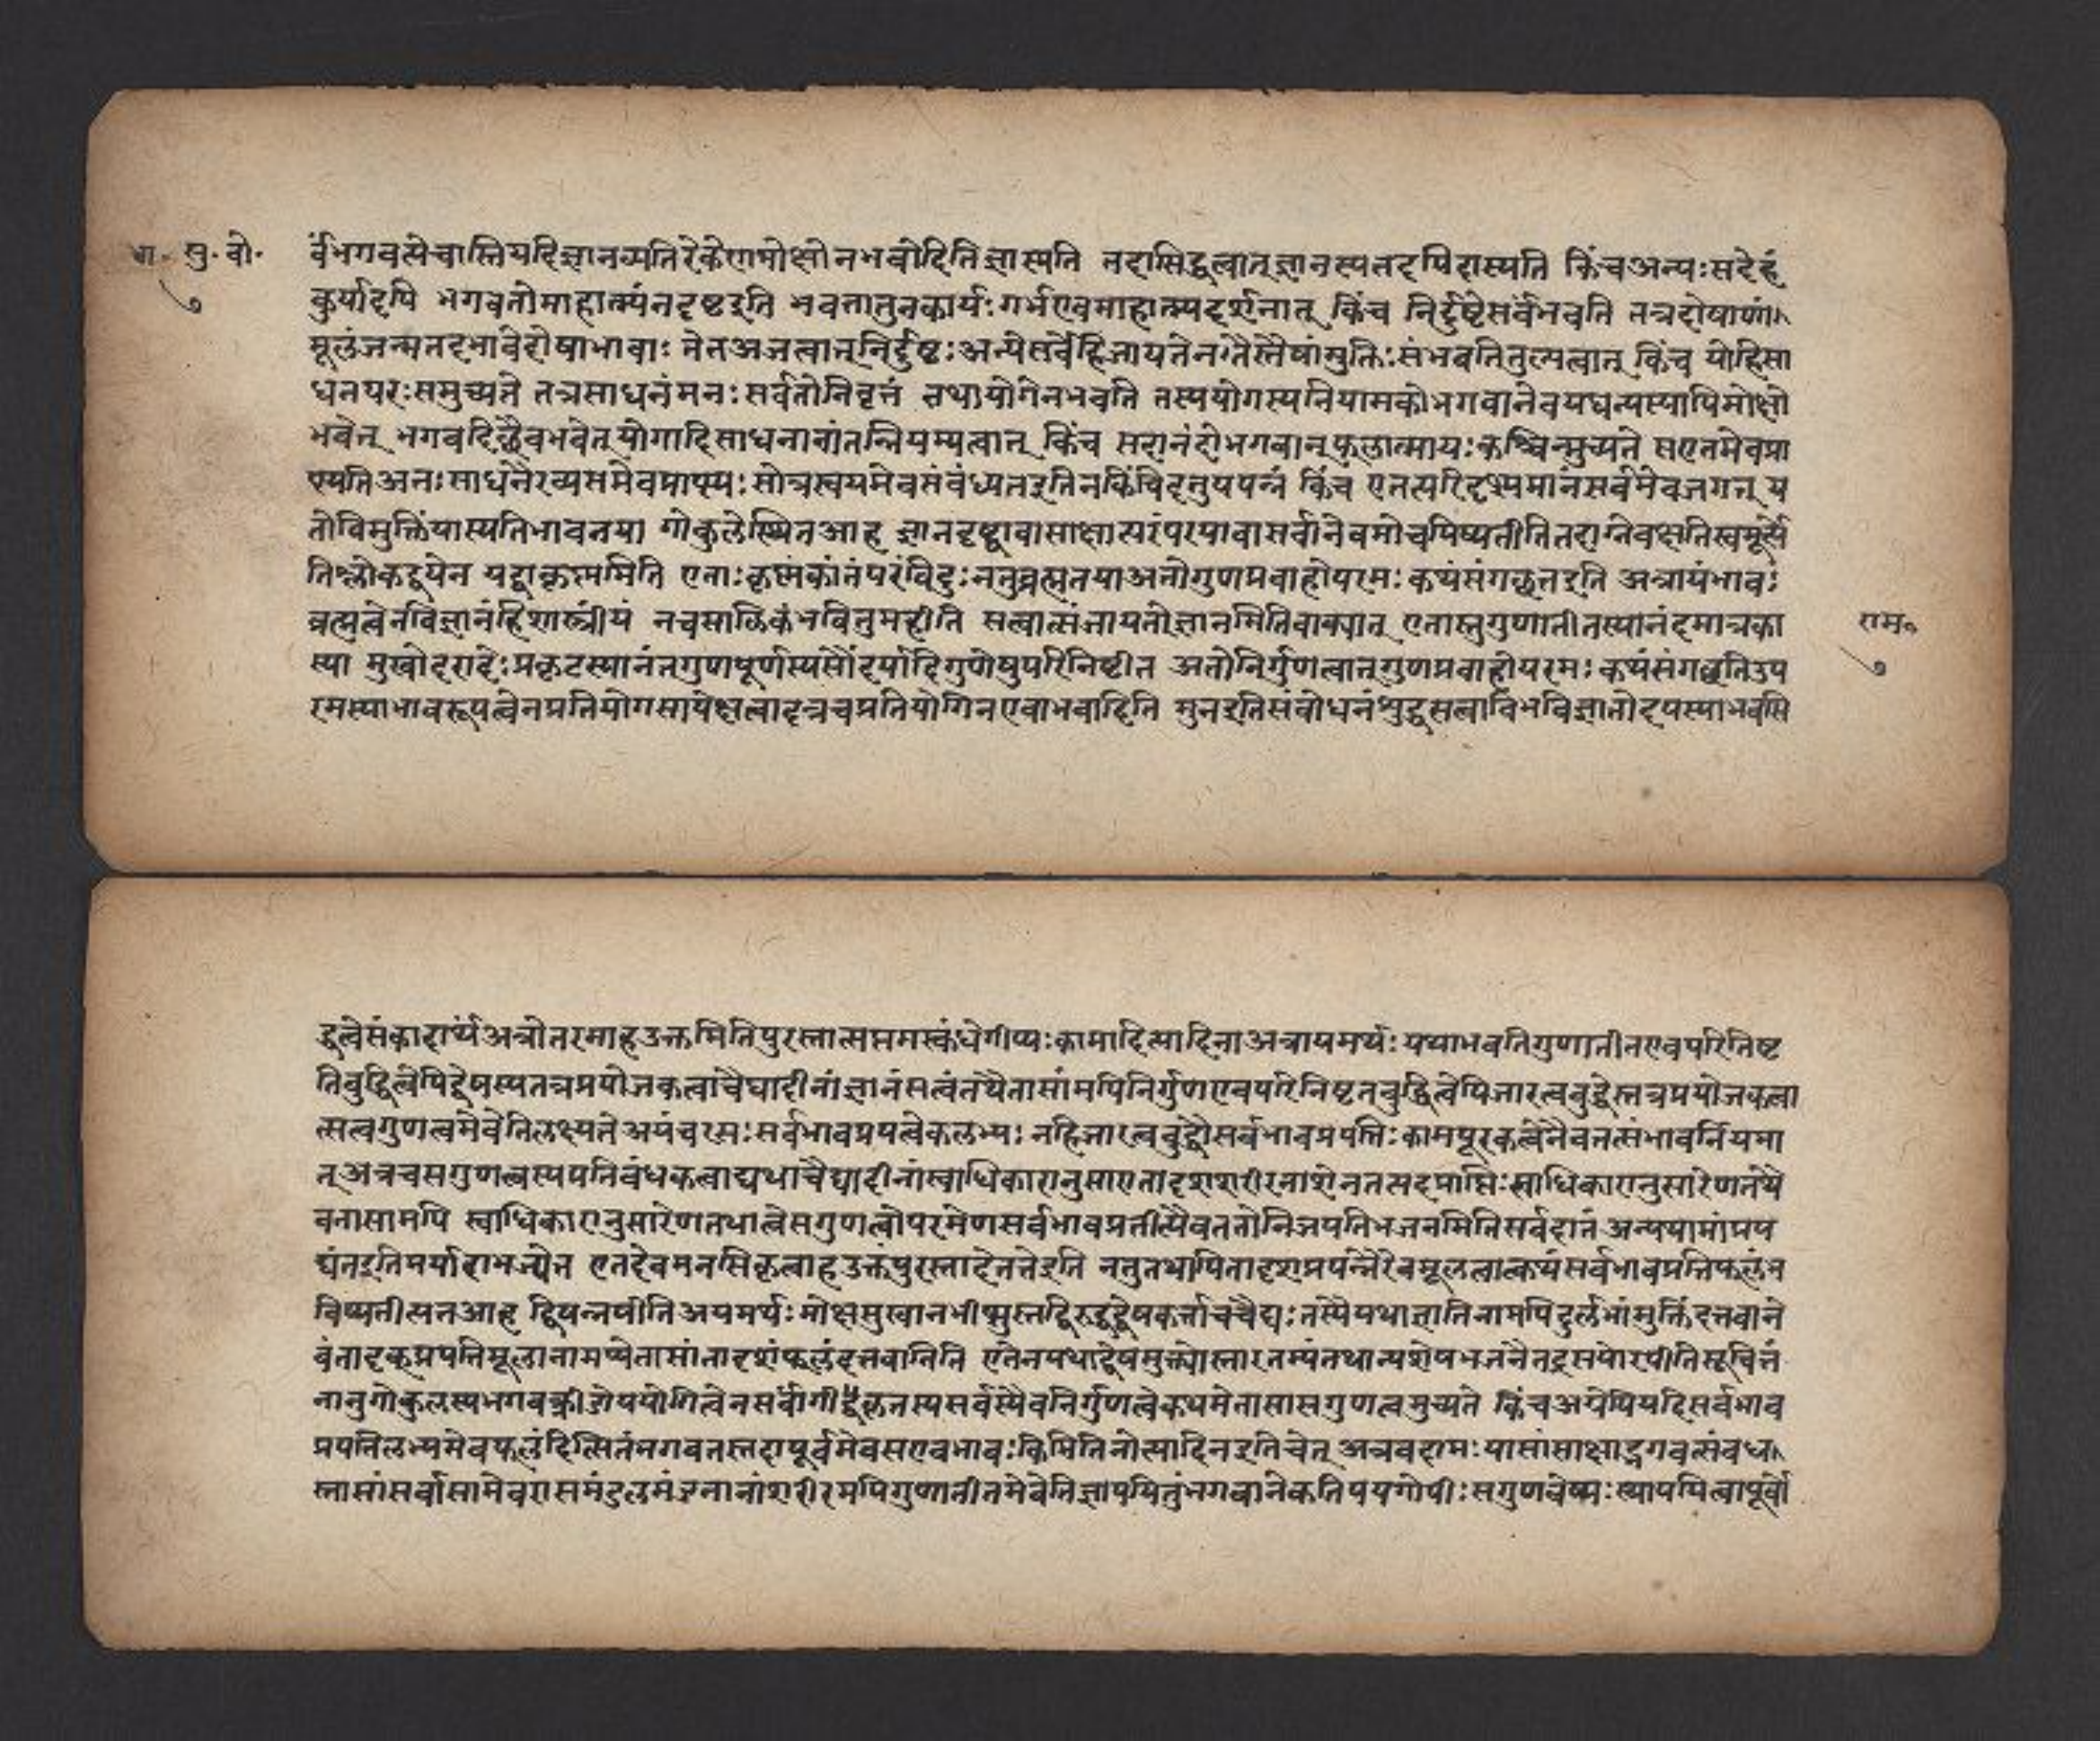 भा. सु. बो.
७
र्वंभगवत्येवास्तियदिज्ञानव्यतिरेकेणमोक्षोनभवेदितिज्ञास्यति तदासिद्धत्वात्ज्ञानस्यतदपिदास्यति किंचअन्यःसंदेहं
कुर्यादपि भगवतोमाहात्म्यंनदृष्टइति भवतातुनकार्यःगर्भएवमाहात्म्यदर्शनात् किंच निर्दुष्टेसर्वंभवति तत्रदोषाणां
मूलंजन्मतदभावेदोषाभावाः तेनअजत्वात्निर्दुष्टःअन्येसर्वेहिजायंतेनतैस्तैषांमुक्तिःसंभवतितुल्यत्वात् किंच योहिसा
धनपरःसमुच्यते तत्रसाधनंमनःसर्वतोनिवृत्तं तथायोगेनभवति तस्ययोगस्यनियामकोभगवानेवयद्यन्यस्यापिमोक्षो
भवेत् भगवदिछैवभवेत्योगादिसाधनानांतन्नियम्यत्वात् किंच सदानंदोभगवान्फलात्मायःकश्चिन्मुच्यते सएतमेवप्रा
प्स्यतिअतःसाधनैरप्यसमेवप्राप्स्यःसोत्रस्वयमेवसंबंध्यतइतिनकिंचिदनुपपन्नं किंच एतत्परिदृश्यमानंसर्वमेवजगत् य
तोविमुक्तिंयास्यतिभावनया गोकुलेस्थितआह ज्ञानदृष्ट्वावासाक्षात्परंपरयावासर्वानेवमोचयिष्यतीतितदाग्रेवक्ष्यतिस्वमूर्त्ये
तिश्लोकद्वयेन यद्वाकृष्णमिति एताःकृष्णंकांतंपरंविदुःननुब्रह्मतयाअतोगुणप्रवाहोपरमःकथंसंगछतइति अत्रायंभावः
ब्रह्मत्वेनविज्ञानंहिशास्त्रीयं नचसात्विकंभवितुमर्हति सत्वात्संजायतेज्ञानमितिवाक्यात् एतास्तुगुणातीतस्यानंदमात्रका
स्या मुखोदरादेःप्रकृटस्यानंतगुणपूर्णस्यसौंदर्यादिगुणेषुपरिनिष्टीत अतोनिर्गुणत्वात्गुणप्रवाहोपरमःकथंसंगछतिउप
रमस्याभावरूपत्वेनप्रतियोगसापेक्षत्वादत्रचप्रतियोगिनएवाभवादिति मुनइतिसंबोधनंशुद्धसत्वाविर्भविज्ञातोदयस्याभवसि
राम॰
७
द्धत्वेसंकादार्ढ्यंअत्रोतरमाहउक्तमितिपुरस्तात्सप्तमस्कंधेगोप्यःकामादित्यादिनाअत्रायमर्थःयथाभवतिगुणातीतएवपरिनिष्ट
तिबुद्धित्वेपिद्वेषस्यतत्रप्रयोजकत्वांचैद्यादीनांज्ञानंसत्वंतथैतासांमपिनिर्गुणएवपरिनिष्टतबुद्धित्वेपिजारत्वबुद्धेस्तत्रप्रयोजकत्वा
त्सत्वगुणत्वमेवेतिलक्ष्यतेअयंचरसःसर्वभावप्रपत्वेकलभ्यः नहिजारत्वबुद्धौसर्वभावप्रपत्तिःकामपूरकत्वेनैवतत्संभावनियमा
त्अत्रचसगुणत्वस्यप्रतिबंधकत्वाद्यथाचैद्यादीनांस्वाधिकारानुसारएतादृशशरीरनाशेनतत्सदप्राप्तिःस्वाधिकारानुसारेणतथै
वनासामपि स्वाधिकारानुसारेणतथात्वेसगुणत्वोपरमेणसर्वभावप्रतीत्यैवततोनिजपतिभजनमितिसर्वदानं अन्यथामांप्रप
द्यंतइतिमर्यादाभज्येत एतदेवमनसिकृत्वाहउक्तंपुरस्तादेतत्तेइति ननुतथापितादृशप्रपन्नैरेवमूलत्वात्कथंसर्वभावप्रत्तिफलंभ
विष्यतीत्यतआह द्विषन्नपीतिअयमर्थःमोक्षसुखानभीप्सुस्तद्विरुद्धद्वेषकर्त्ताचचैद्यःतस्यैयथाज्ञातिनामपिदुर्लभांमुक्तिंदत्तवाने
वंतादृकप्रपत्तिमूलानामप्येतासांतादृशंफलंदत्तवानिति एतेनयथाद्वेषमुक्त्योस्तारतम्यंतथान्यशेषभजनैतद्रसयोरपीतिसूचितं
नानुगोकुलस्यभगवत्क्रीडोपयोगित्वेनसर्वांगीकृतस्यसर्वस्यैवनिर्गुणत्वेकथमेतासांसगुणत्वमुच्यते किंचअग्रेपियदिसर्वभाव
प्रपत्तिलभ्यमेवफलंदित्सितंभगवतस्तदापूर्वमेवसएवभावःकिमितिनोत्पादितइतिचेत् अत्रवदामःयासांसाक्षाद्भगवत्संबंध
स्तासांसर्वासामेवरासमंडलमंडनानांशरीरमपिगुणातीतमेवेतिज्ञापयितुंभगवानेकतिपयगोपीःसगुणवेष्यःस्थापयित्वापूर्वो